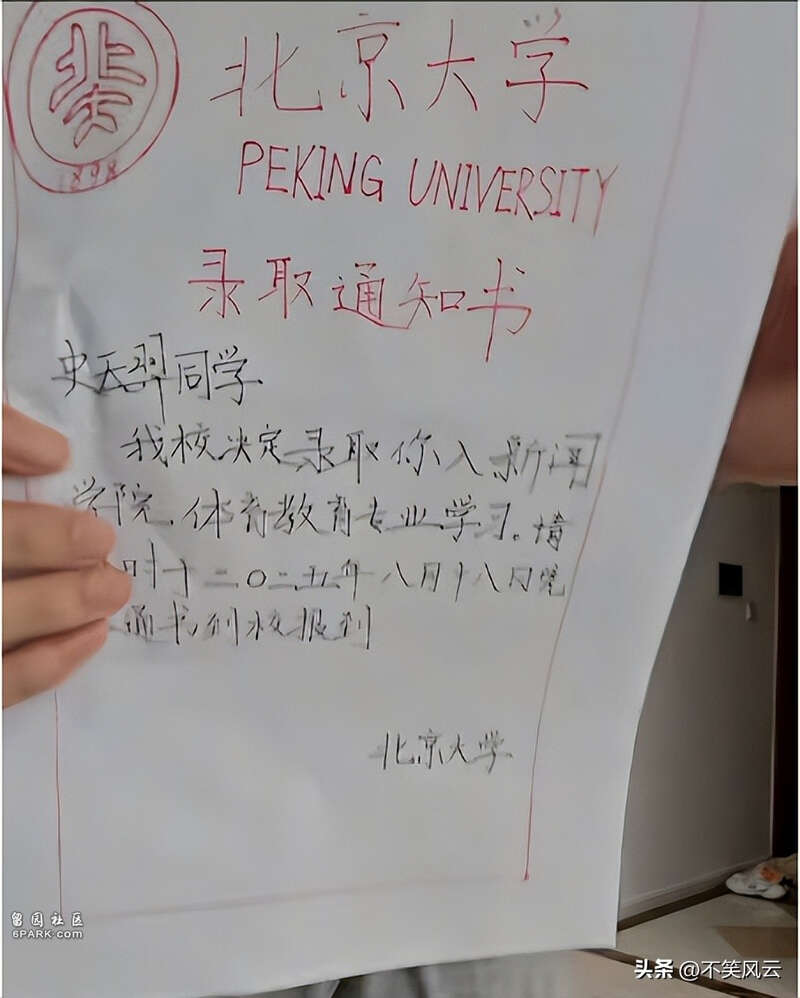 1898
北京大学
PEKING UNIVERSITY
录取通知书
史天羿同学
我校决定录取你入新闻
学院、体育教育专业学习。请
时于二〇二五年八月十八日凭
通书到校报到
北京大学
留园社区
6PARK.com
头条 @不笑风云